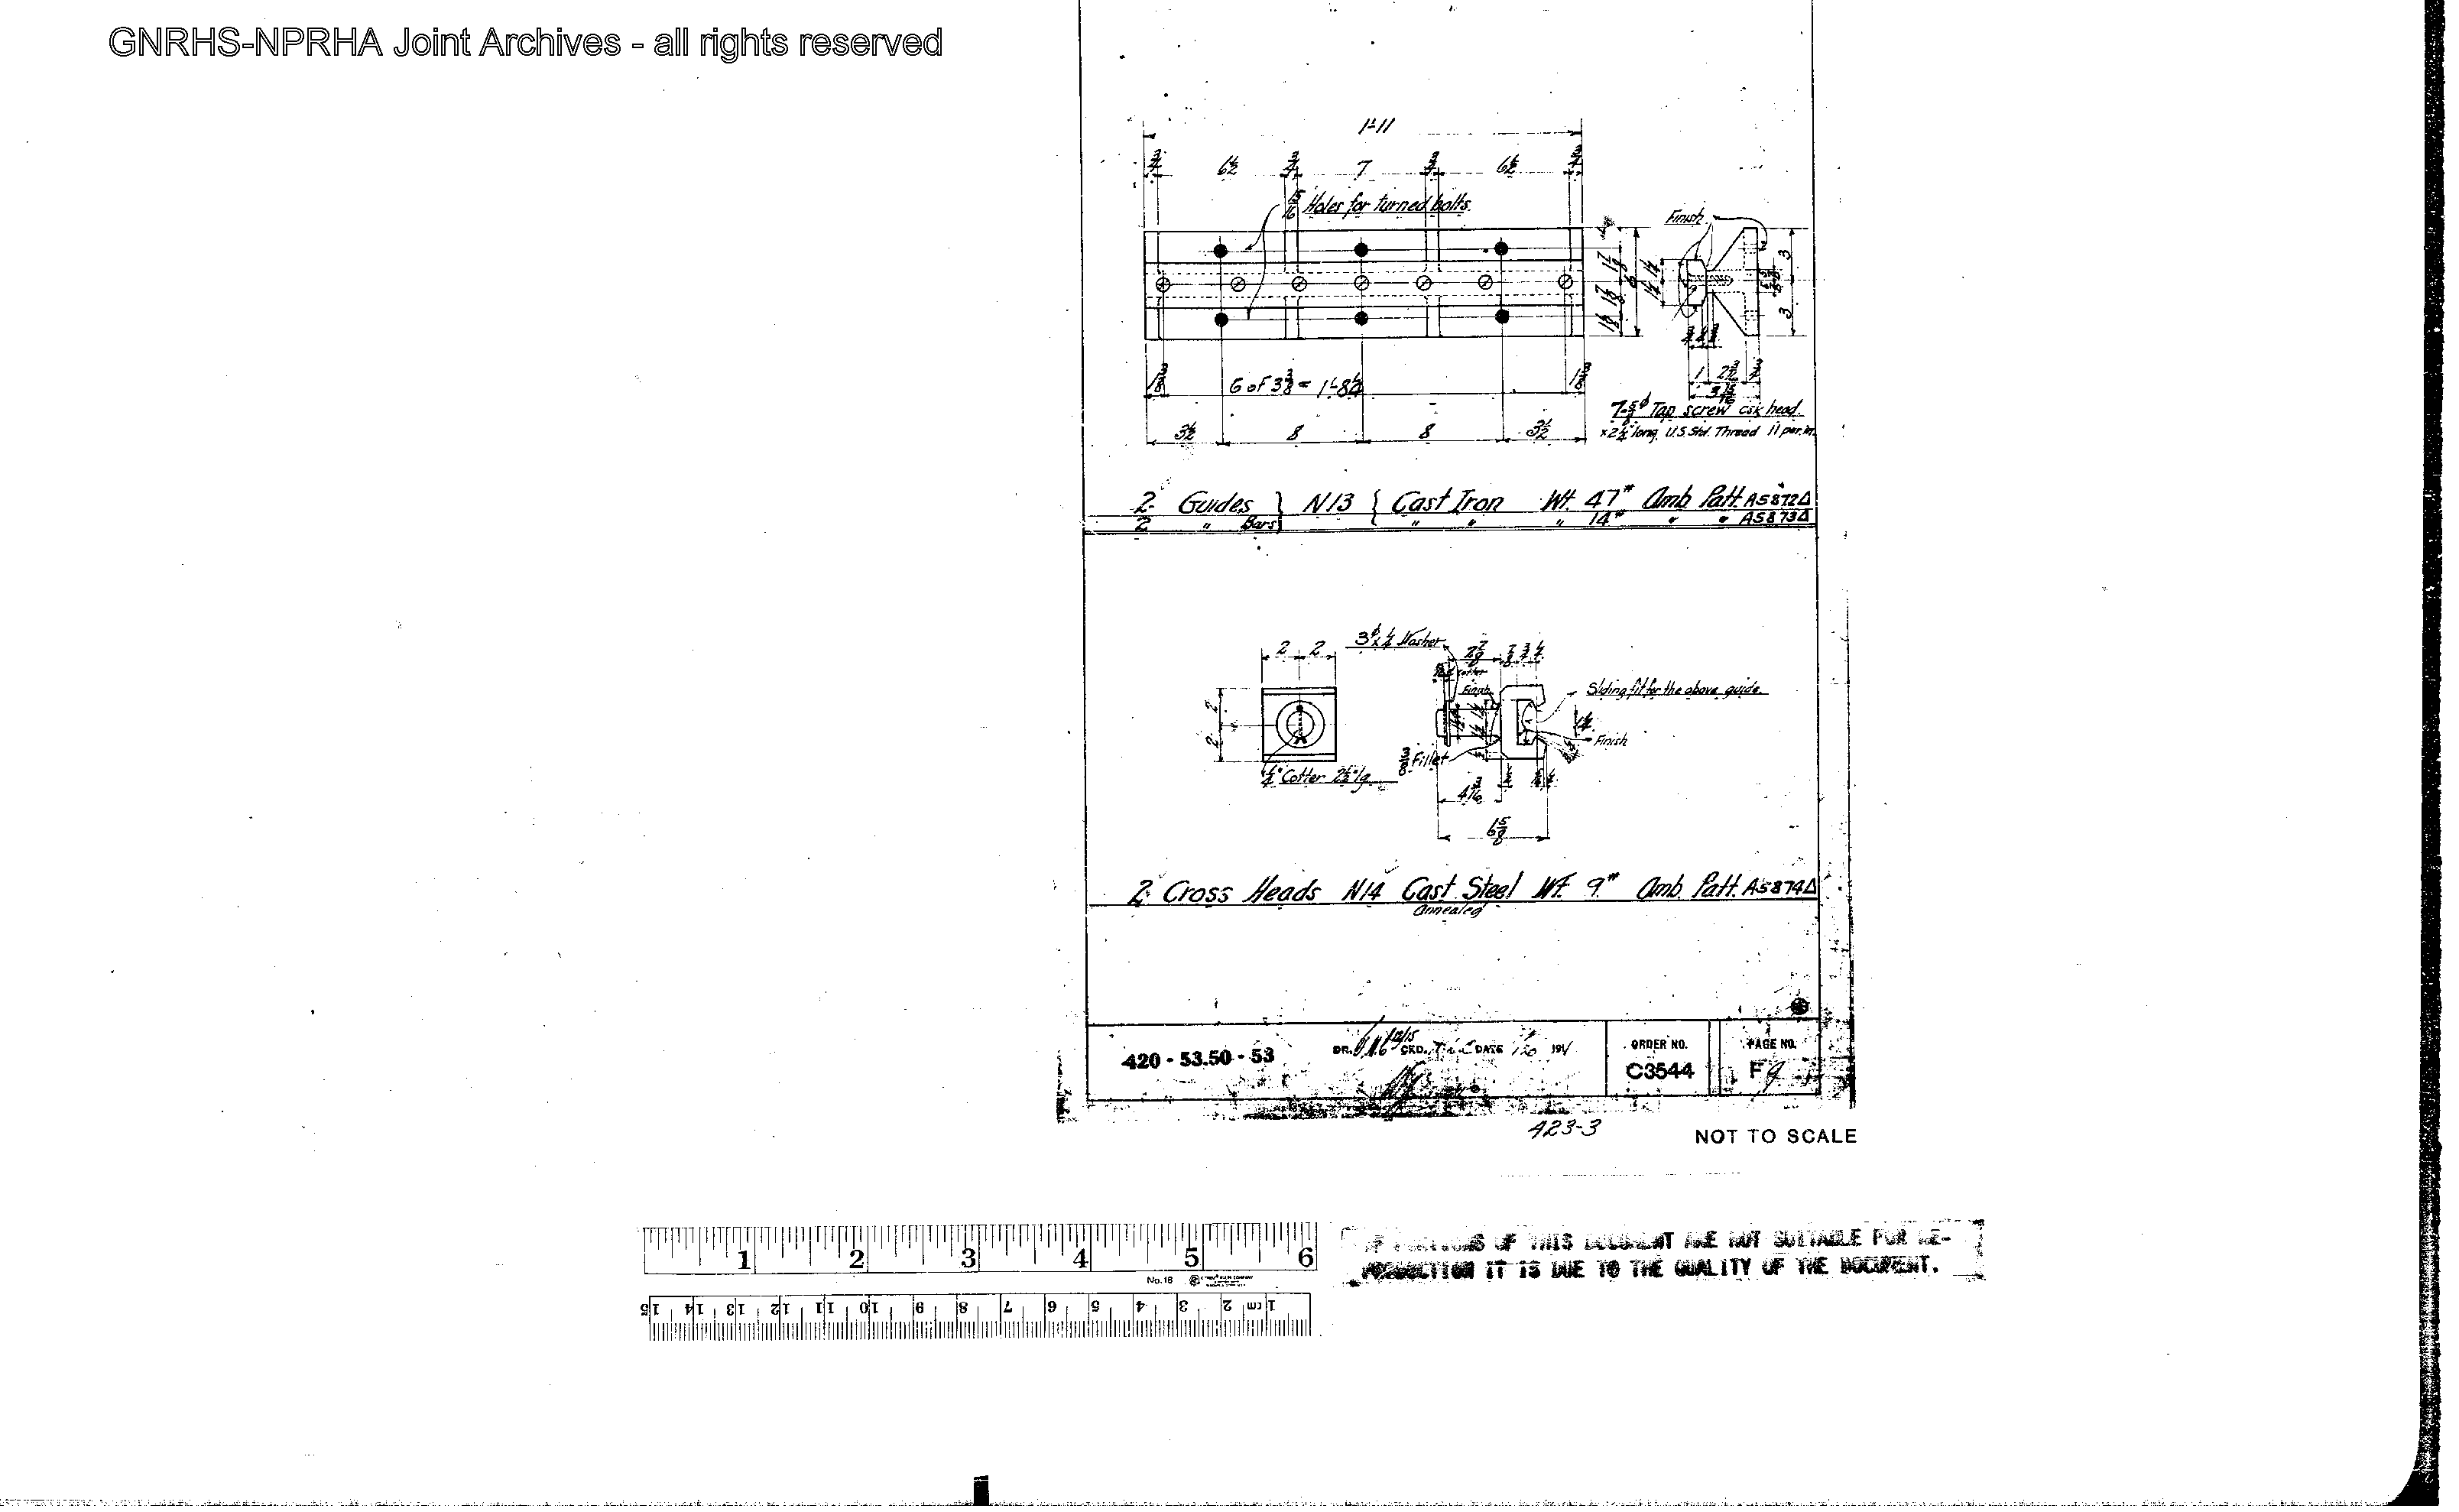 GNRHS-NPRHA Joint Archives - all rights reserved
1'-11
3/4 6 1/2 3/4 7 3/4 6 1/2 3/4
15/16 Holes for turned bolts.
Finish
1 3/8 6 of 3 3/8 = 1'-8 1/4 1 3/8
3 1/2 8 8 3 1/2
6
3
3
1 2 3/2
3 15/16
7-5/8 φ Tap screw csk head.
x 2 1/4" long. U.S. Std. Thread 11 per. in.
2 Guides } N13 { Cast Iron Wt. 47# Amb. Patt. A5872Δ
2 " Bars } { " " " 14# " " A5873Δ
2 2
3 φ x 1/4 Washer
2 7/8 7/8 3/4 1/4
Cotter
Finish
Sliding fit for the above guide.
2
2
Finish
3/8 Fillet
1/4" Cotter 2 1/2" lg.
4 3/16
6 5/8
2 Cross Heads N14 Cast Steel Wt. 9# Amb. Patt. A5874Δ
Annealed
420 - 53.50 - 53
DR. CKD. DATE 191
ORDER NO.
C3544
PAGE NO.
F9
423-3
NOT TO SCALE
1 2 3 4 5 6
No. 16
15 14 13 12 11 10 9 8 7 6 5 4 3 2 1 cm
IF PORTIONS OF THIS DOCUMENT ARE NOT SUITABLE FOR RE-
PRODUCTION IT IS DUE TO THE QUALITY OF THE DOCUMENT.